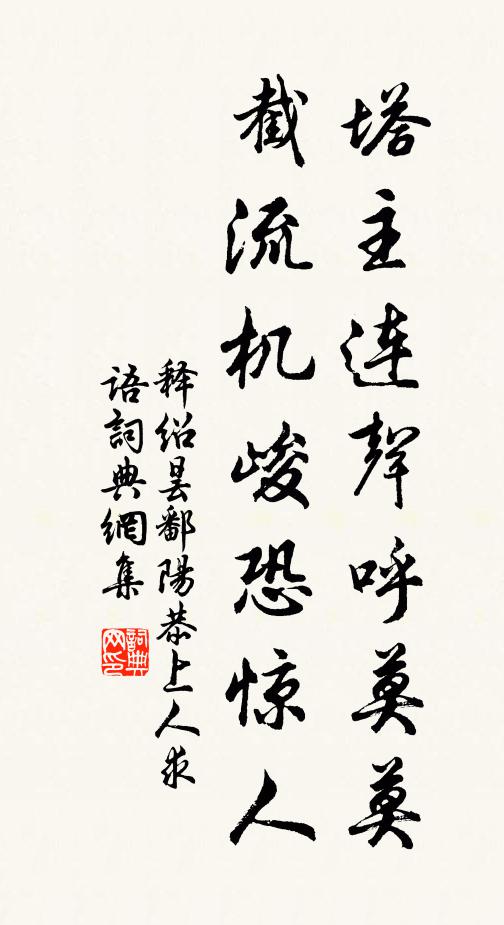 塔主连聲呼莫莫
截流机峻恐惊人
释绍昙鄱陽恭上人求
语詞典網集
詞典网印